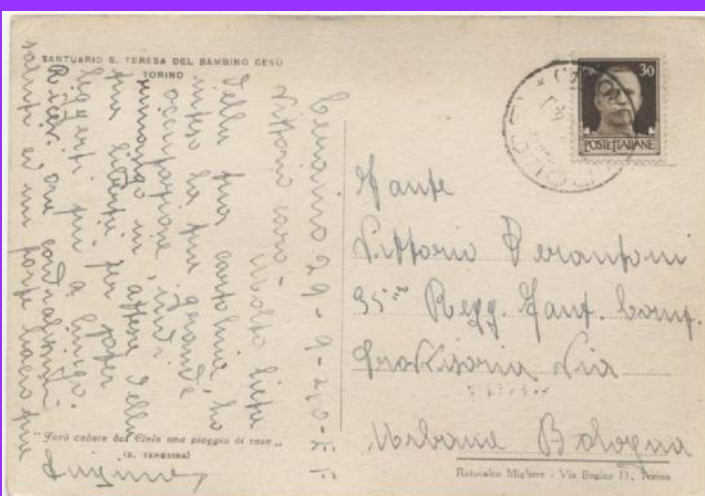 SANTUARIO S. TERESA DEL BAMBINO GESÙ
TORINO
29-9-40-
Vittorio caro - Molto lieta
della tua cartolina, ho
inteso la tua grande
occupazione, indi
rimango in attesa della
tua libertà per poter
leggerti più a lungo.
Ricevi ora
saluti ed un forte bacio tua
"Farò cadere dal Cielo una pioggia di rose„
(S. TERESINA)
30
POSTE ITALIANE
Fante
Vittorio
35mo Regg. Fant.
Provvisoria Via
Urbana Bologna
Rotocalco Migliore - Via Bogino 13, Torino